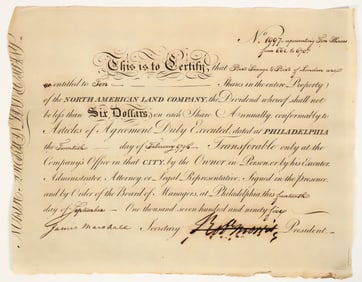 No. 1997. representing Ten Shares
from 661 to 670.
This is to Certify, that Bird Savage & Bird of London are
entitled to Ten Shares in the entire Property
of the NORTH AMERICAN LAND COMPANY, the Dividend whereof shall not
be less than Six Dollars on each Share Annually, conformably to
Articles of Agreement Duly Executed, dated at PHILADELPHIA
the Twentieth day of February 1795. Transferable only at the
Company's Office in that CITY, by the Owner in Person, or by his Executor
Administrator Attorney or Legal Representative Signed in the presence
and by Order of the Board of Managers, at Philadelphia, this
day of September One thousand seven hundred and ninety five
James Marshall Secretary Robt Morris President.
NORTH AMERICAN LAND